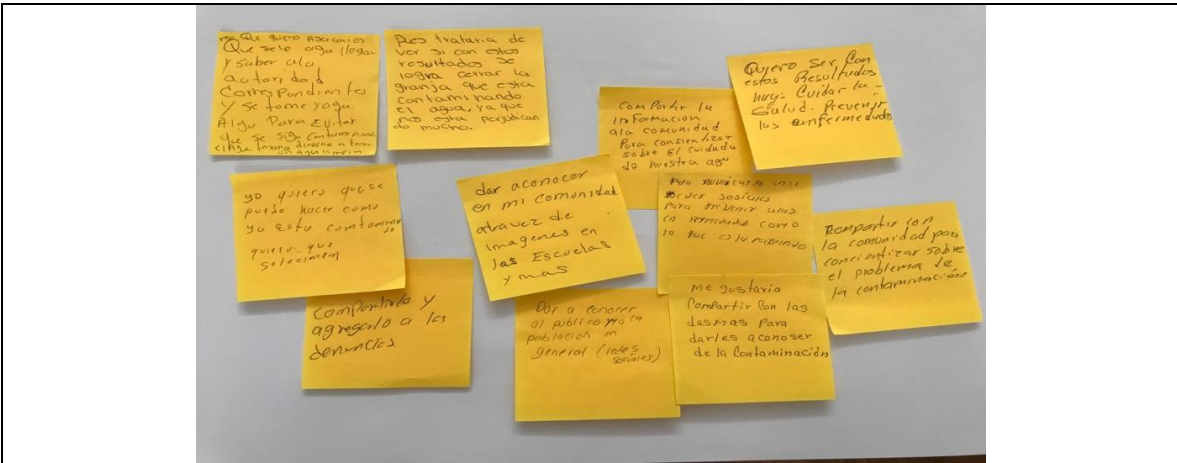 Que quiero
Que sele aga llegar
y saber ala
autoridad
correspondientes
y se tome yaga
Algo Para Evitar
que se siga contaminando
el Agua derecho a
Pues trataria de
ver si con estos
resultados se
logra cerrar la
granja que esta
contaminando
el agua, ya que
nos esta perjudican-
do mucho.
comPartir la
inFormacion
ala comunidad
Para consientizar
sobre El cuidado
de nuestra agu
Quiero Ser Con
estos Resultados
hay: Cuidar la -
Salud. Prevenir
las enfermedades
yo quiero que se
puede hacer como
ya esta contamina
do
quiero que
solocionen
dar aconocer
en mi comunidad
atravez de
imagenes en
las Escuelas
y mas
Para
sosiales
Para Prevenir
como
lo que
compartir con
la comunidad para
concientizar sobre
el problema de
la contaminación
compartirlo y
agregarlo a las
denuncias
Dar a conocer
al publico y a la
población en
general (redes
sociales)
me gustaria
ComPartir Con las
desmas Para
darles aconoser
de la Contaminación